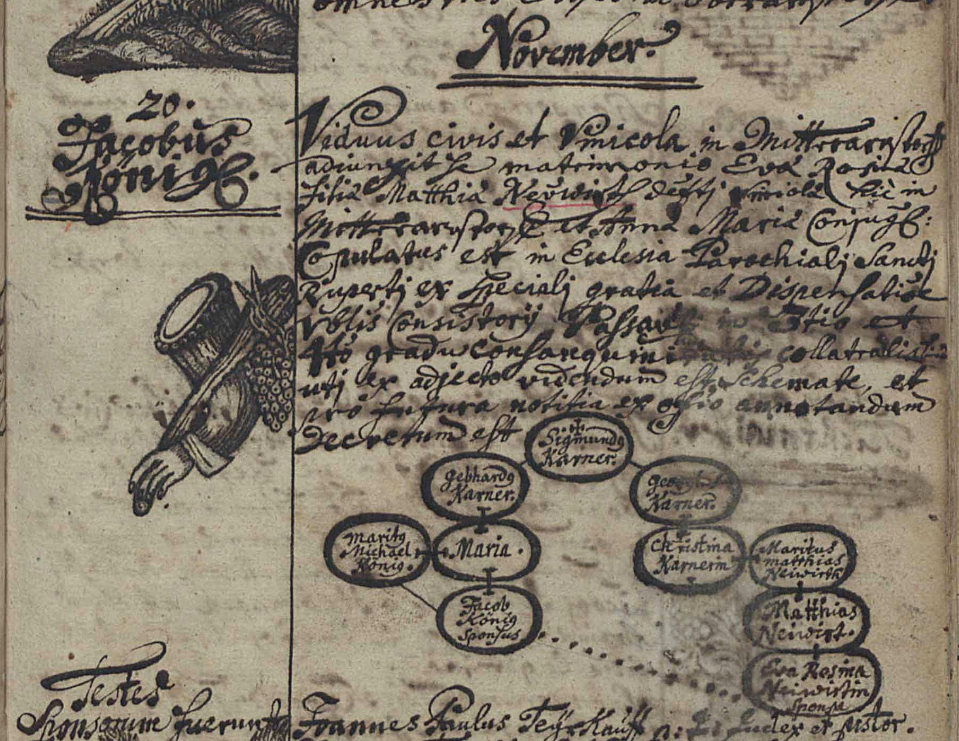 November.
20.
Jacobus
König.
Viduus civis et Vinicola in Mitterarnstorff
adiunxit se matrimonio Eva Rosina
filia Matthiá Neuwirth vinicola hic in
Mitterarnstorff et Anna Maria Conjug:
Copulatus est in Ecclesia Parochialj Sanctj
Rupertj ex specialj gratia et Dispensatiōe
Consistorÿ Passav in 3tio et
4to gradu consanguini collateralis
utj ex adjecto videndum est schemate, et
pro futura notitia ex annotandum
Decretum est
Sigmundg
Karner.
Gebhardg
Karner.
Georg
Karner.
maritg
Michael
König.
Maria.
Christina
Karnerin
Maritus
matthias
Neiwirth
Jacob
König
Sponsus
Matthias
Neiwirt.
Eva Rosina
Neiwirtin
sponsa
Testes
Sponsorum fuerunt
Joannes Paulus Judex et pistor.